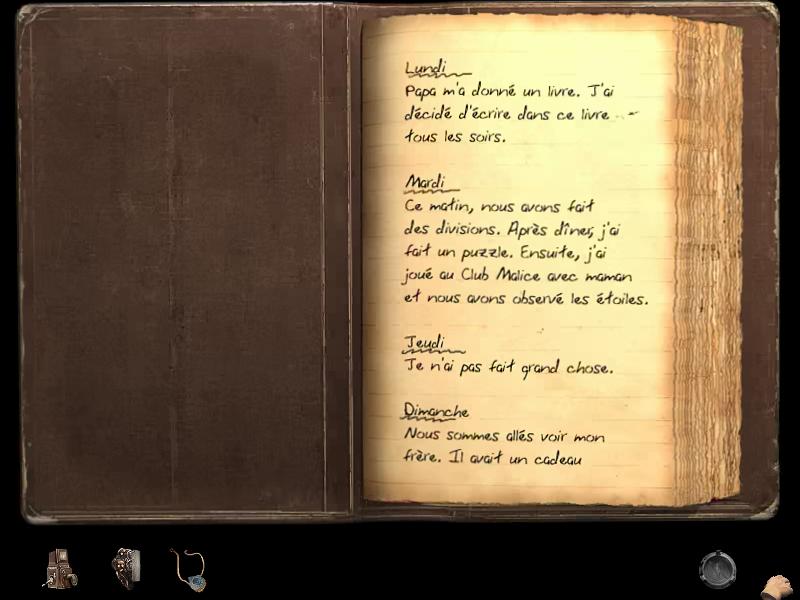 Lundi
Papa m'a donné un livre. J'ai
décidé d'écrire dans ce livre
tous les soirs.
Mardi
Ce matin, nous avons fait
des divisions. Après dîner, j'ai
fait un puzzle. Ensuite, j'ai
joué au Club Malice avec maman
et nous avons observé les étoiles.
Jeudi
Je n'ai pas fait grand chose.
Dimanche
Nous sommes allés voir mon
frère. Il avait un cadeau